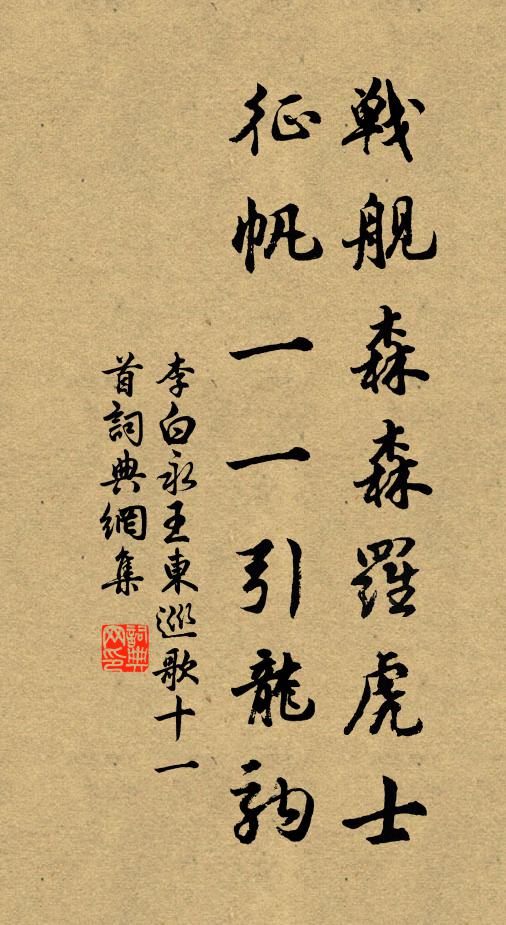 戦舰森森羅虎士
征帆一一引龍駒
李白永王東巡歌十一
首詞典網集
詞典
网印